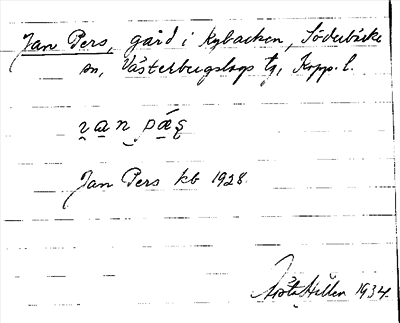 Jan Pers, gård i Kybacken, Söderbärke
sn, Västerbergslags tg, Kopp. l.
Jan Pers kb 1928.
1934.